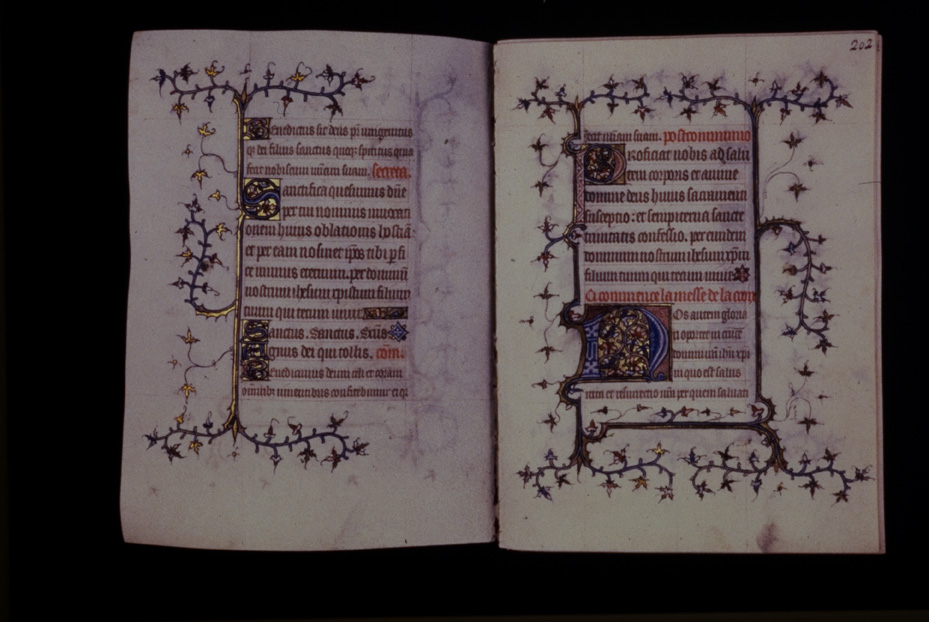 Benedictus sit deus pr̃ unigenitus
q; dei filius sanctus quoq; spiritus quia
fecit nobiscum mĩam suam. secreta.
Sanctifica quesumus dñe
per tui nominis invocati
onem huius oblationis hostiã
et per eam nosmet ip̃os tibi p̃fi
ce munus eternum. per dominũ
nostrum ihesum xpistum filium
tuum qui tecum vivit
Sanctus. Sanctus. Scũs
Agnus dei qui tollis. com̃.
Benedicimus deum celi et coram
omnibus viventibus confitebimur ei q̃
202
cit mĩam suam. postcommunio
Proficiat nobis ad salu
tem corporis et anime
domine deus huius sacramenti
susceptio: et sempiterna sancte
trinitatis confessio. per eundem
dominum nostrum ihesum xp̃m
filium tuum qui tecum vivit
Ci commence la messe de la croix
Nos autem gloria
ri oportet in cruce
domini nr̃i ihũ xp̃i
in quo est salus
vita et resurrectio nr̃a per quem salvati